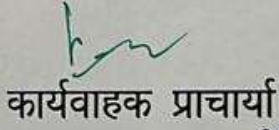 कार्यवाहक प्राचार्या